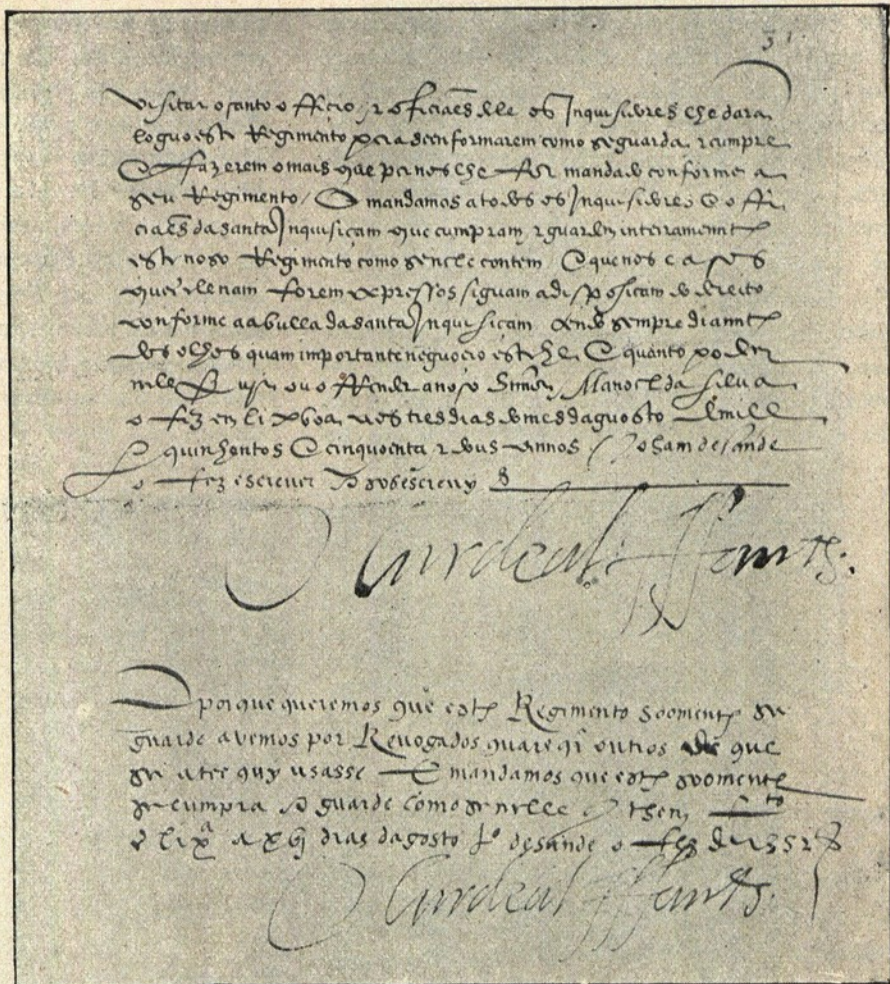 31
visitar o santo officio, e officiaes delle os Inquisidores lhe dara
loguo este Regimento pera se enformarem como se guarda e cumpre
E fazerem o mais que per nos lhe for mandado conforme a
seu Regimento / E mandamos a todos os Inquisidores E offi
ciaes da santa Inquisicam que cumpram, e guardem inteiramente
este noso Regimento como se nelle contem / E que nos casos
que nelle nam forem expressos siguam a disposicam do direito
conforme a a bulla da santa Inquisicam tendo sempre diante
dos olhos quam importante neguocio este he E quanto
nelle noso Manoel da silva
o fez en lixboa aos tres dias do mes daguosto de mill
E quinhentos E cinquoenta e dous annos / Joham de sande
o fez escrever E sobescrevy
O Cardeal Iffante
E porque queremos que este Regimento soomente se
guarde avemos por Revogados quaes q̃r outros de que
se atee quy usasse E mandamos que este soomente
se cumpra E guarde como se nelle
e lixª a xbj dias dagosto Jº de sande o fez de 1552
O Cardeal Iffante